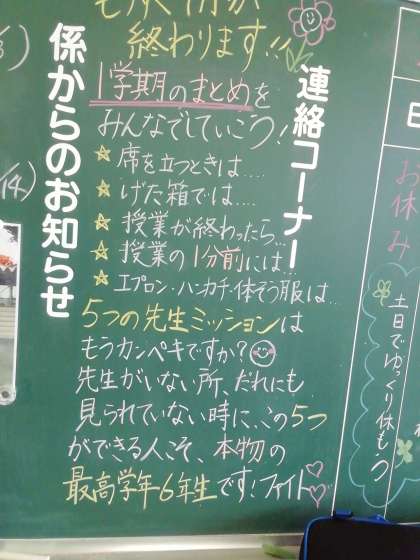 もうすぐ1学期が
終わります!!
連絡コーナー
係からのお知らせ
1学期のまとめを
みんなでしていこう!
☆席を立つときは....
☆げた箱では....
☆授業が終わったら...
☆授業の1分前には...
☆エプロン・ハンカチ・体そう服は...
5つの先生ミッションは
もうカンペキですか?
先生がいない所、だれにも
見られていない時に、この5つ
ができる人こそ、本物の
最高学年6年生です!ファイト♡
お休み
土日でゆっくり休もう